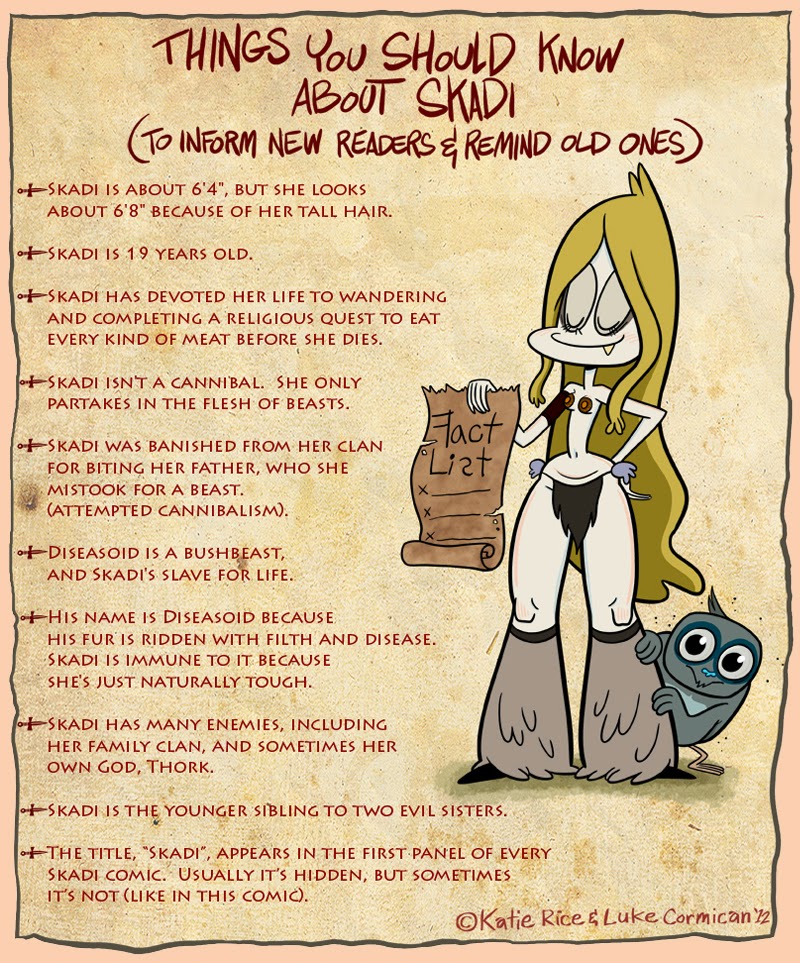 THINGS YOU SHOULD KNOW
ABOUT SKADI
(TO INFORM NEW READERS & REMIND OLD ONES)
SKADI IS ABOUT 6'4", BUT SHE LOOKS
ABOUT 6'8" BECAUSE OF HER TALL HAIR.
SKADI IS 19 YEARS OLD.
SKADI HAS DEVOTED HER LIFE TO WANDERING
AND COMPLETING A RELIGIOUS QUEST TO EAT
EVERY KIND OF MEAT BEFORE SHE DIES.
SKADI ISN'T A CANNIBAL. SHE ONLY
PARTAKES IN THE FLESH OF BEASTS.
SKADI WAS BANISHED FROM HER CLAN
FOR BITING HER FATHER, WHO SHE
MISTOOK FOR A BEAST.
(ATTEMPTED CANNIBALISM).
DISEASOID IS A BUSHBEAST,
AND SKADI'S SLAVE FOR LIFE.
HIS NAME IS DISEASOID BECAUSE
HIS FUR IS RIDDEN WITH FILTH AND DISEASE.
SKADI IS IMMUNE TO IT BECAUSE
SHE'S JUST NATURALLY TOUGH.
SKADI HAS MANY ENEMIES, INCLUDING
HER FAMILY CLAN, AND SOMETIMES HER
OWN GOD, THORK.
SKADI IS THE YOUNGER SIBLING TO TWO EVIL SISTERS.
THE TITLE, "SKADI", APPEARS IN THE FIRST PANEL OF EVERY
SKADI COMIC. USUALLY IT'S HIDDEN, BUT SOMETIMES
IT'S NOT (LIKE IN THIS COMIC).
Fact
List
x
x
x
©Katie Rice & Luke Cormican '12